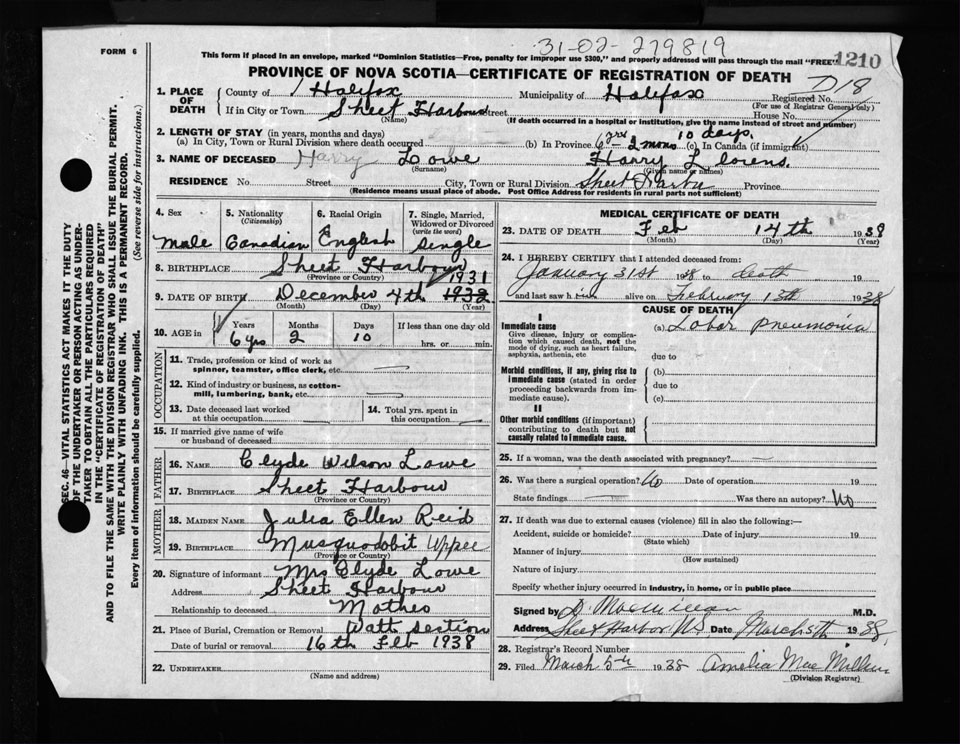 31-02-279819
FORM 6
This form if placed in an envelope, marked "Dominion Statistics—Free, penalty for improper use $300," and properly addressed will pass through the mail "FREE"
1210
PROVINCE OF NOVA SCOTIA—CERTIFICATE OF REGISTRATION OF DEATH
D18
1. PLACE OF DEATH
County of Halifax Municipality of Halifax Registered No.
(For use of Registrar General only)
If in City or Town Sheet Harbour street House No.
(Name) (If death occurred in a hospital or institution, give the name instead of street and number)
2. LENGTH OF STAY (in years, months and days)
(a) In City, Town or Rural Division where death occurred (b) In Province 6 yrs 2 mons 10 days. (c) In Canada (if immigrant)
3. NAME OF DECEASED Harry Lowe Harry L
(Surname) (Given name or names)
RESIDENCE No. Street City, Town or Rural Division Sheet Harbor Province
(Residence means usual place of abode. Post Office Address for residents in rural parts not sufficient)
4. Sex
Male
5. Nationality
(Citizenship)
Canadian
6. Racial Origin
English
7. Single, Married, Widowed or Divorced
(write the word)
Single
8. BIRTHPLACE Sheet Harbour
(Province or Country)
1931
9. DATE OF BIRTH December 4th 1932
(Month) (Day) (Year)
10. AGE in Years Months Days If less than one day old
6 yrs 2 10 hrs. or min.
OCCUPATION
11. Trade, profession or kind of work as spinner, teamster, office clerk, etc. —
12. Kind of industry or business, as cotton-mill, lumbering, bank, etc. —
13. Date deceased last worked at this occupation
14. Total yrs. spent in this occupation
15. If married give name of wife or husband of deceased
FATHER
16. NAME Clyde Wilson Lowe
17. BIRTHPLACE Sheet Harbour
(Province or Country)
MOTHER
18. MAIDEN NAME Julia Ellen Reid
19. BIRTHPLACE Musquodobit Upper
(Province or Country)
20. Signature of informant Mrs Clyde Lowe
Address Sheet Harbour
Relationship to deceased Mother
21. Place of Burial, Cremation or Removal Watt Section
Date of burial or removal 16th Feb 1938
22. UNDERTAKER
(Name and address)
MEDICAL CERTIFICATE OF DEATH
23. DATE OF DEATH Feb 14th 1938
(Month) (Day) (Year)
24. I HEREBY CERTIFY that I attended deceased from:
January 31st 1938 to death 19
and last saw him alive on February 13th 1938
CAUSE OF DEATH
I
Immediate cause
Give disease, injury or complication which caused death, not the mode of dying, such as heart failure, asphyxia, asthenia, etc
(a) Lobar Pneumonia
due to
Morbid conditions, if any, giving rise to immediate cause (stated in order proceeding backwards from immediate cause).
(b)
due to
(c)
II
Other morbid conditions (if important) contributing to death but not causally related to immediate cause.
25. If a woman, was the death associated with pregnancy? —
26. Was there a surgical operation? No Date of operation 19
State findings — Was there an autopsy? No
27. If death was due to external causes (violence) fill in also the following:—
Accident, suicide or homicide? Date of injury 19
(State which)
Manner of injury
(How sustained)
Nature of injury
Specify whether injury occurred in industry, in home, or in public place
Signed by D. Macmillan M.D.
Address Sheet Harbor NS Date March 5th 1938
28. Registrar's Record Number
29. Filed March 5th 1938 Amelia MacMillan
(Division Registrar)
SEC. 46—VITAL STATISTICS ACT MAKES IT THE DUTY
OF THE UNDERTAKER OR PERSON ACTING AS UNDER-
TAKER TO OBTAIN ALL THE PARTICULARS REQUIRED
IN THE "CERTIFICATE OF REGISTRATION OF DEATH"
AND TO FILE THE SAME WITH THE DIVISION REGISTRAR WHO SHALL ISSUE THE BURIAL PERMIT.
WRITE PLAINLY WITH UNFADING INK. THIS IS A PERMANENT RECORD.
Every item of information should be carefully supplied. (See reverse side for instructions.)